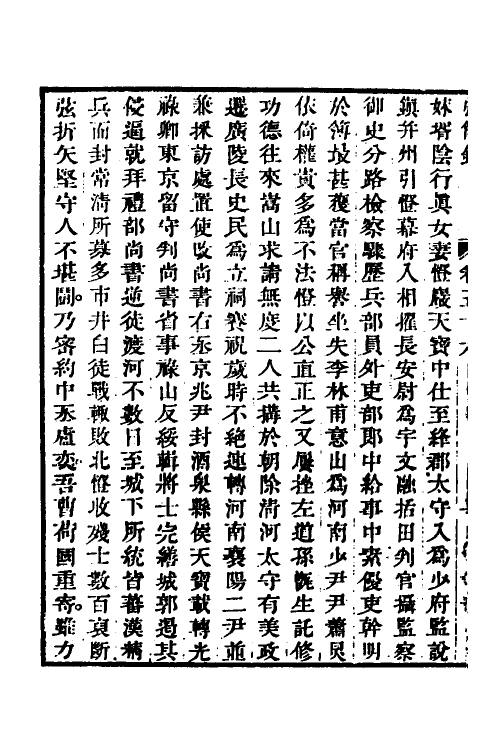 妹壻陰行眞女妻憕嚴天寶中仕至絳郡太守入爲少府監說
鎭幷州引憕幕府入相擢長安尉爲宇文融括田判官攝監察
御史分路檢察驟歷兵部員外吏部郞中給事中素優吏幹明
於簿故甚獲當官稱譽坐失李林甫意出爲河南少尹尹蕭炅
依倚權貴多爲不法憕以公直正之又屢挫左道孫甑生託修
功德往來嵩山求請無度二人共搆於朝除淸河太守有美政
遷廣陵長史民爲立祠賽祝歲時不絕連轉河南襄陽二尹並
兼採訪處置使改尚書右丞京兆尹封酒泉縣侯天寶載轉光
祿卿東京留守判尚書省事祿山反綏輯將士完繕城郭遏其
侵逼就拜禮部尚書逆徒渡河不數日至城下所統皆蕃漢精
兵而封常淸所募多市井白徒戰輒敗北憕收殘士數百裒斷
弦折矢堅守人不堪鬭乃密約中丞盧奕吾曹荷國重寄雖力